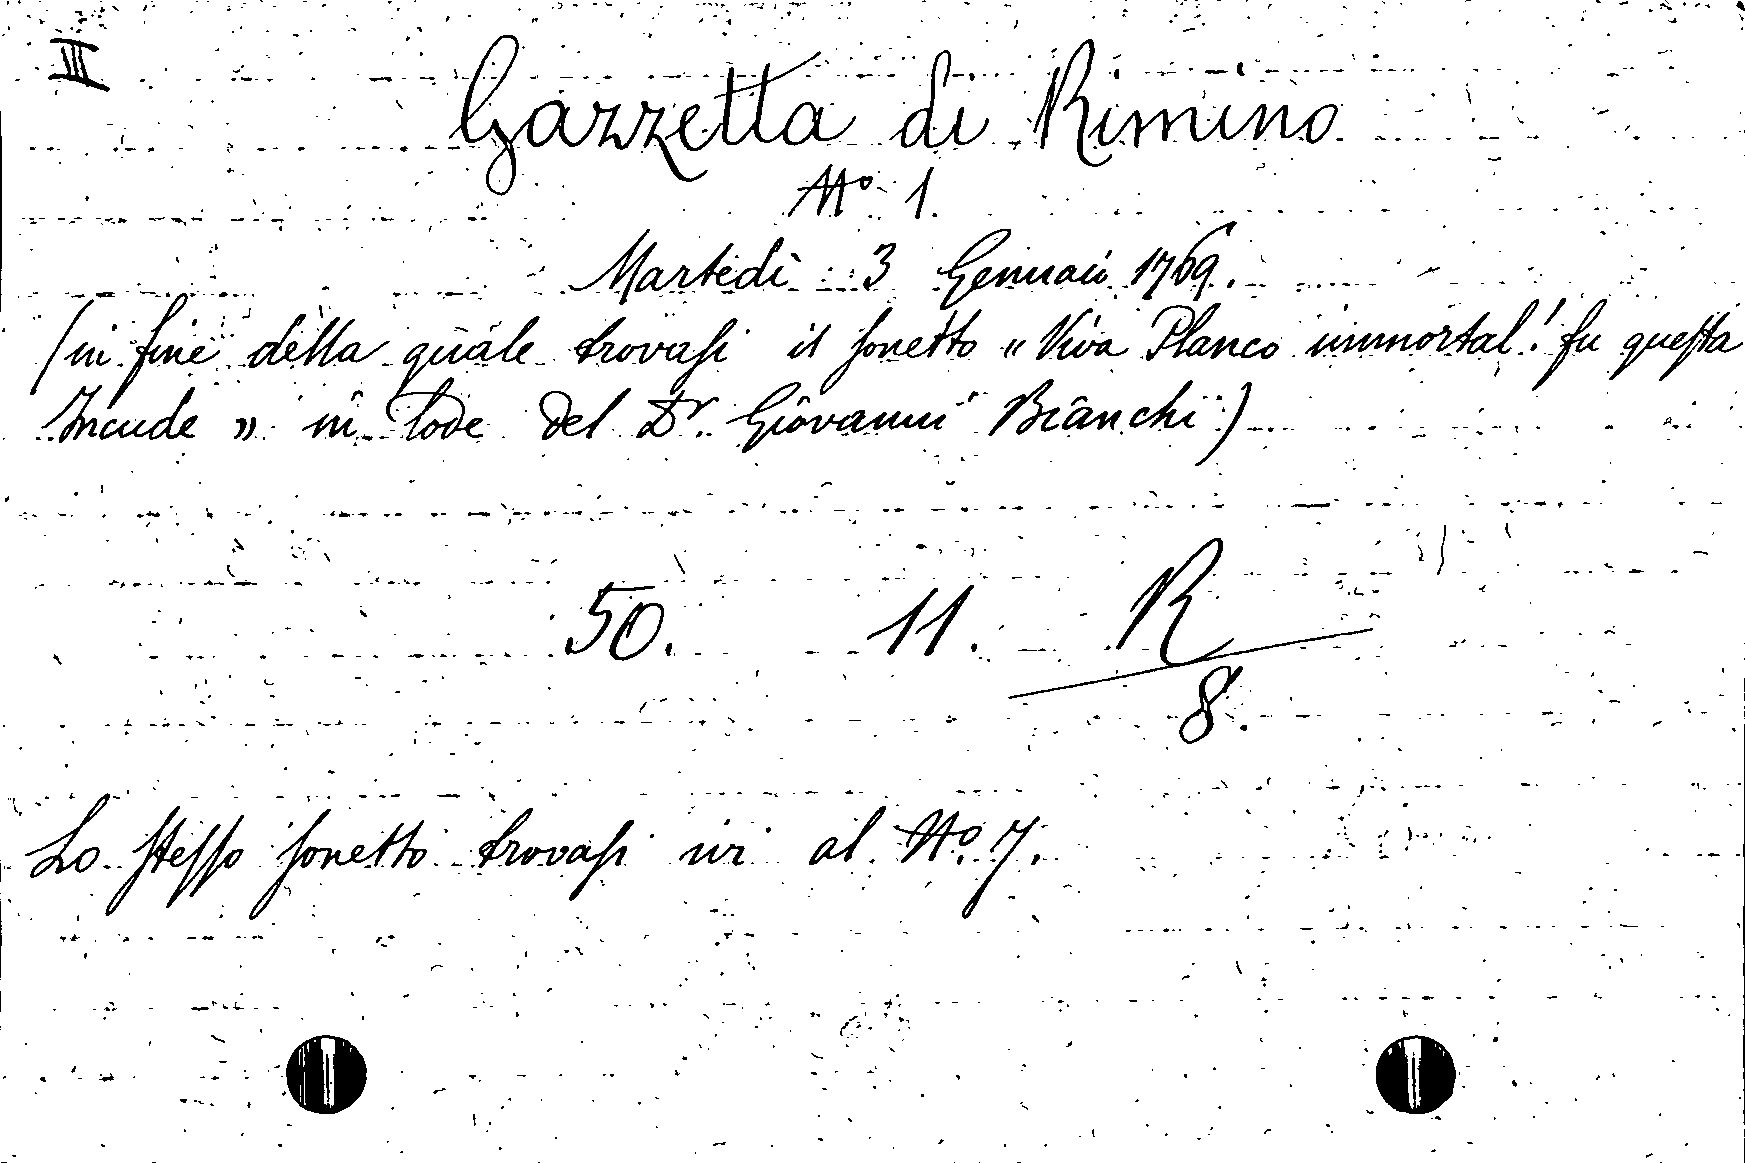 III
Gazzetta di Rimino
No. 1.
Martedì 3 Gennaio 1769.
(in fine della quale trovasi il sonetto « Viva Planco immortal! su questa
Incude » in lode del Dr. Giovanni Bianchi)
50. 11. R
8.
Lo stesso sonetto trovasi ivi al No. 7.